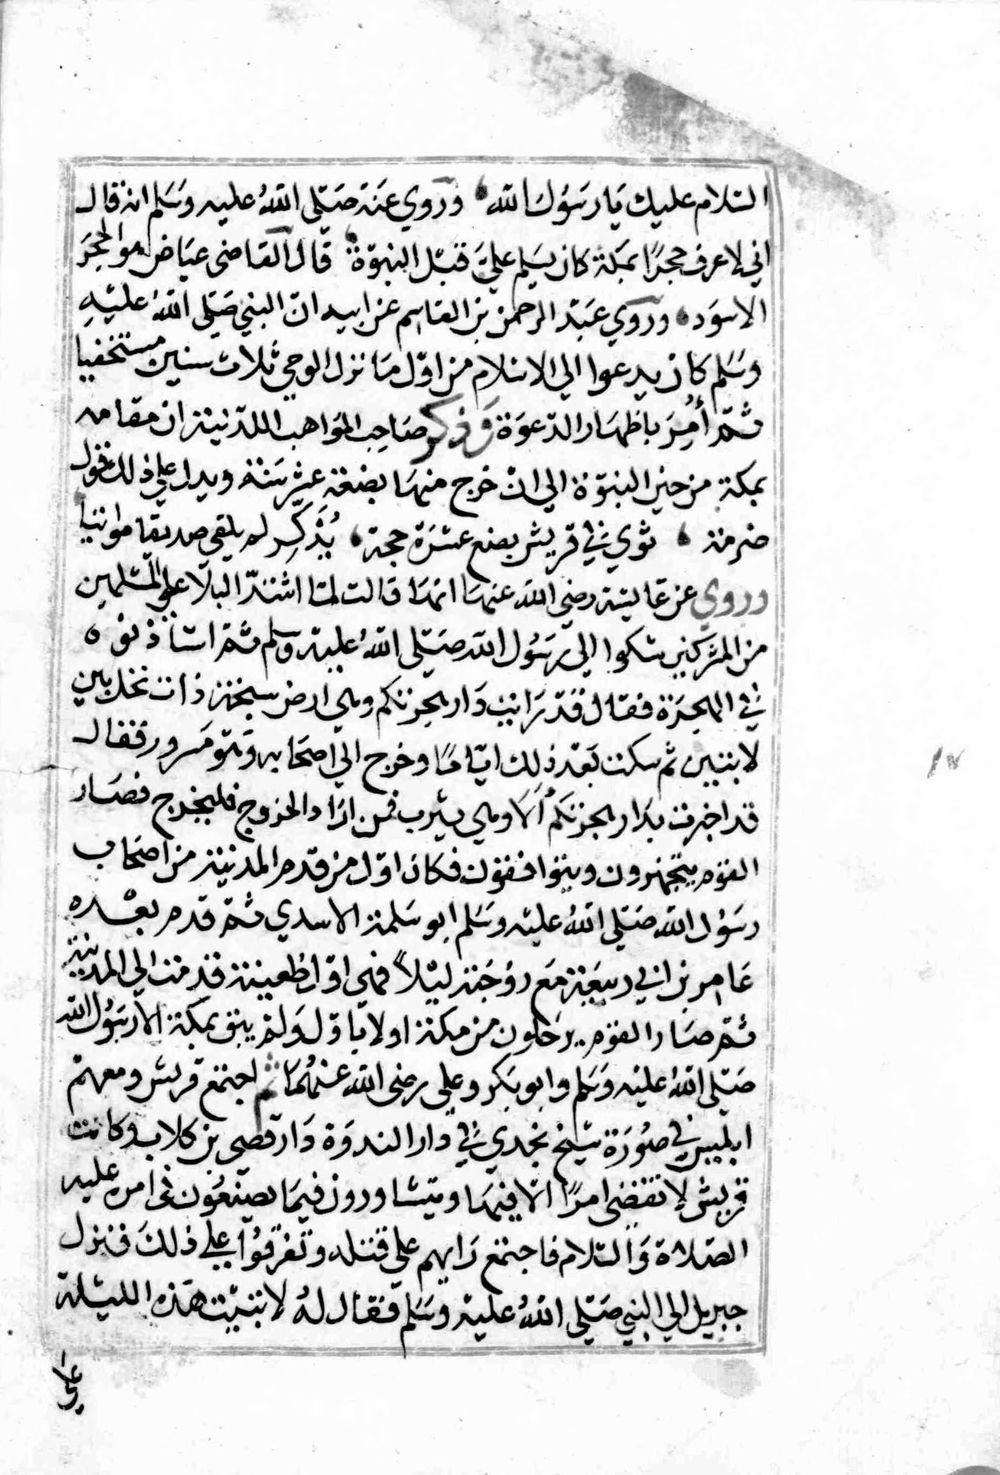 السلام عليك يا رسول الله وروي عنه صلى الله عليه وسلم انه قال
اني لاعرف حجرا بمكة كان يسلم علي قبل النبوة قال القاضي عياض هو الحجر
الاسود وروي عبد الرحمن بن القاسم عن ابيه ان النبي صلى الله عليه
وسلم كان يدعوا الي الاسلام من اول ما نزل الوحي ثلاث سنين مستخفيا
ثم أمر باظهار الدعوة وذكر صاحب المواهب اللدنية ان مقامه
بمكة من حين النبوة الي ان خرج منها بضعة عشر سنة ويدل علي ذلك قول
صرمة ثوي في قريش بضع عشرة حجة يذكر لو يلقي صديقا مواتيا
وروي عن عايشة رضي الله عنها انها قالت لما اشتد البلا علي المسلمين
من المشركين شكوا الي رسول الله صلى الله عليه وسلم ثم استأذنوه
في الهجرة فقال قد رايت دار هجرتكم وهي ارض سبخة ذات نخل بين
لابتين ثم مكث بعد ذلك اياما وخرج الي اصحابه وهو مسرور فقال
قد اخبرت بدار هجرتكم ألا وهي يثرب فمن اراد الخروج فليخرج فصار
القوم يتجهزون ويتوافقون فكان اول من قدم المدينة من اصحاب
رسول الله صلى الله عليه وسلم ابو سلمة الاسدي ثم قدم بعده
عامر بن ابي ربيعة مع زوجته ليلا فهي اول ظعينة قدمت الي المدينة
ثم صار القوم يرحلون من مكة اولا باول ولم يبق بمكة الا رسول الله
صلى الله عليه وسلم وابو بكر وعلي رضي الله عنهما ثم اجتمع قريش ومعهم
ابليس في صورة شيخ نجدي في دار الندوة دار قصي بن كلاب وكانت
قريش لا تقضي امرا الا فيها ويتشاورون فيما يصنعون في امره عليه
الصلاة والسلام فاجتمع رايهم علي قتله وتفرقوا علي ذلك فنزل
جبريل الي النبي صلى الله عليه وسلم فقال له لا تبيت هذه الليلة
علي